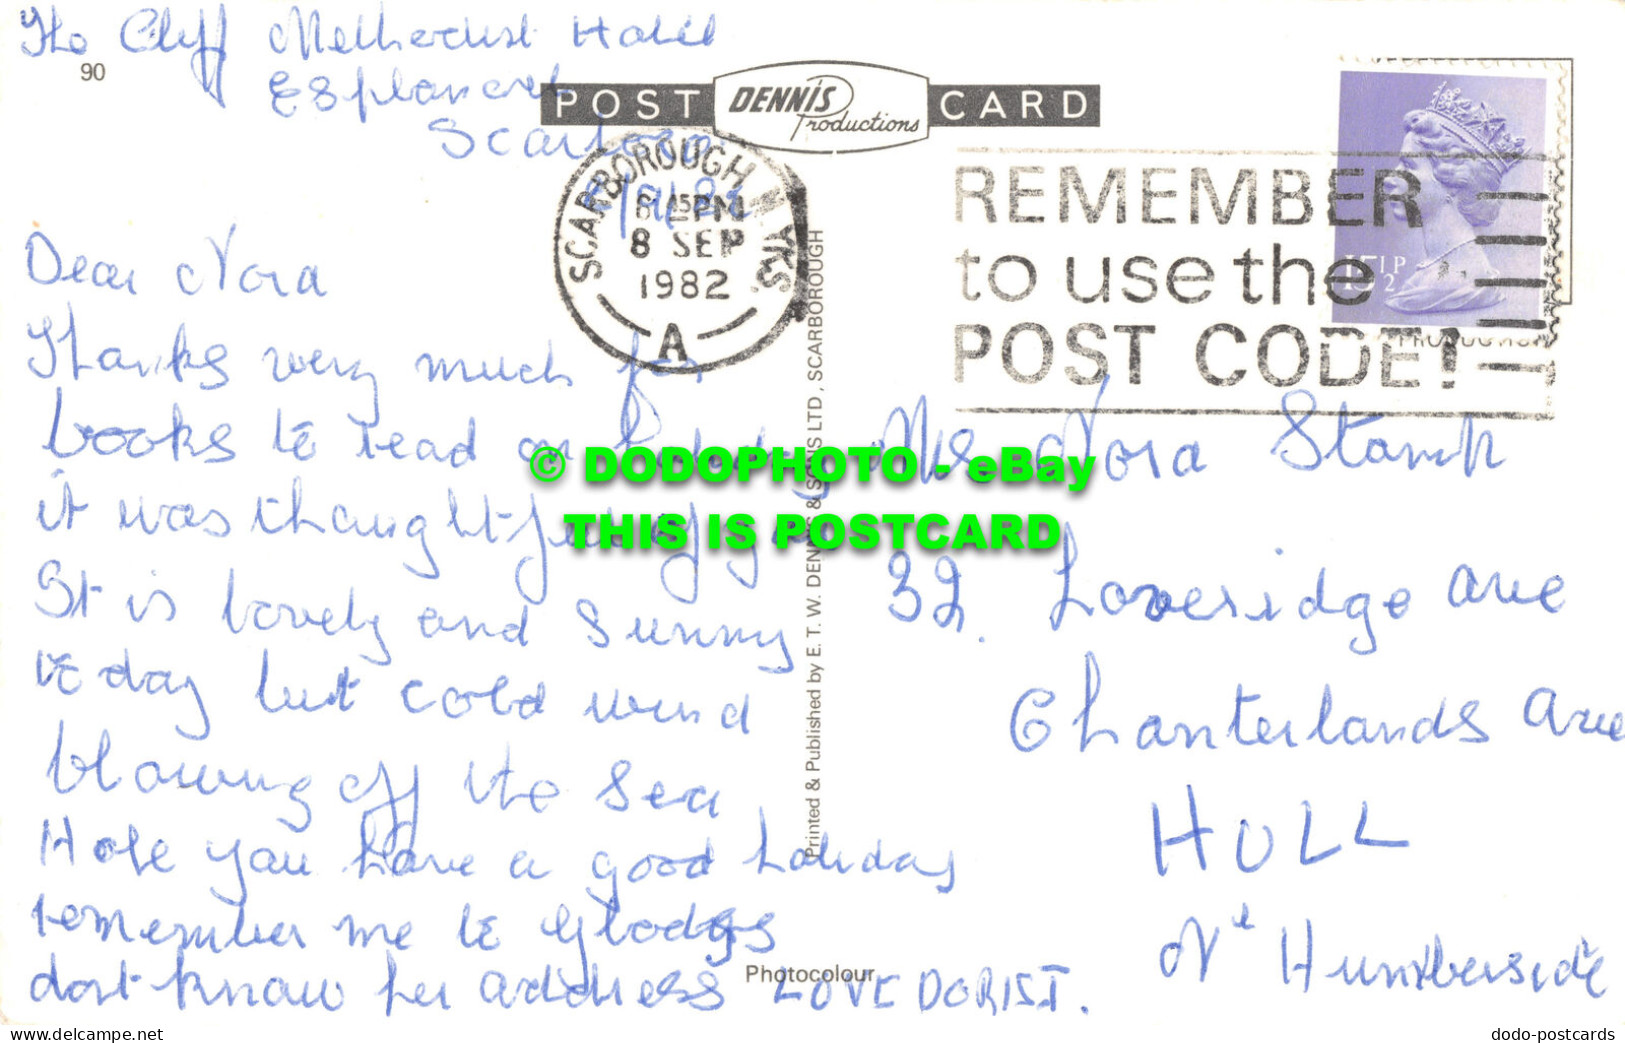 The Cliff Methodist Hotel
90
Esplanade
Scarboro
8/9/82
POST CARD
DENNIS
Productions
SCARBOROUGH N. YKS.
8 SEP
1982
A
REMEMBER
to use the
POST CODE!
15½P
Dear Nora
Thanks very much for
books to read on
it was thoughtful of you
It is lovely and sunny
to day but cold wind
blowing off the sea
Hope you have a good holiday
remember me to Gladys
dont know her address LOVE DORIS I.
Printed & Published by E. T. W. DENNIS & SONS LTD, SCARBOROUGH
Photocolour
Nora Stamp
32. Loveridge Ave
Chanterlands Ave
HULL
Nth Humberside
© DODOPHOTO - eBay
THIS IS POSTCARD
www.delcampe.net
dodo-postcards